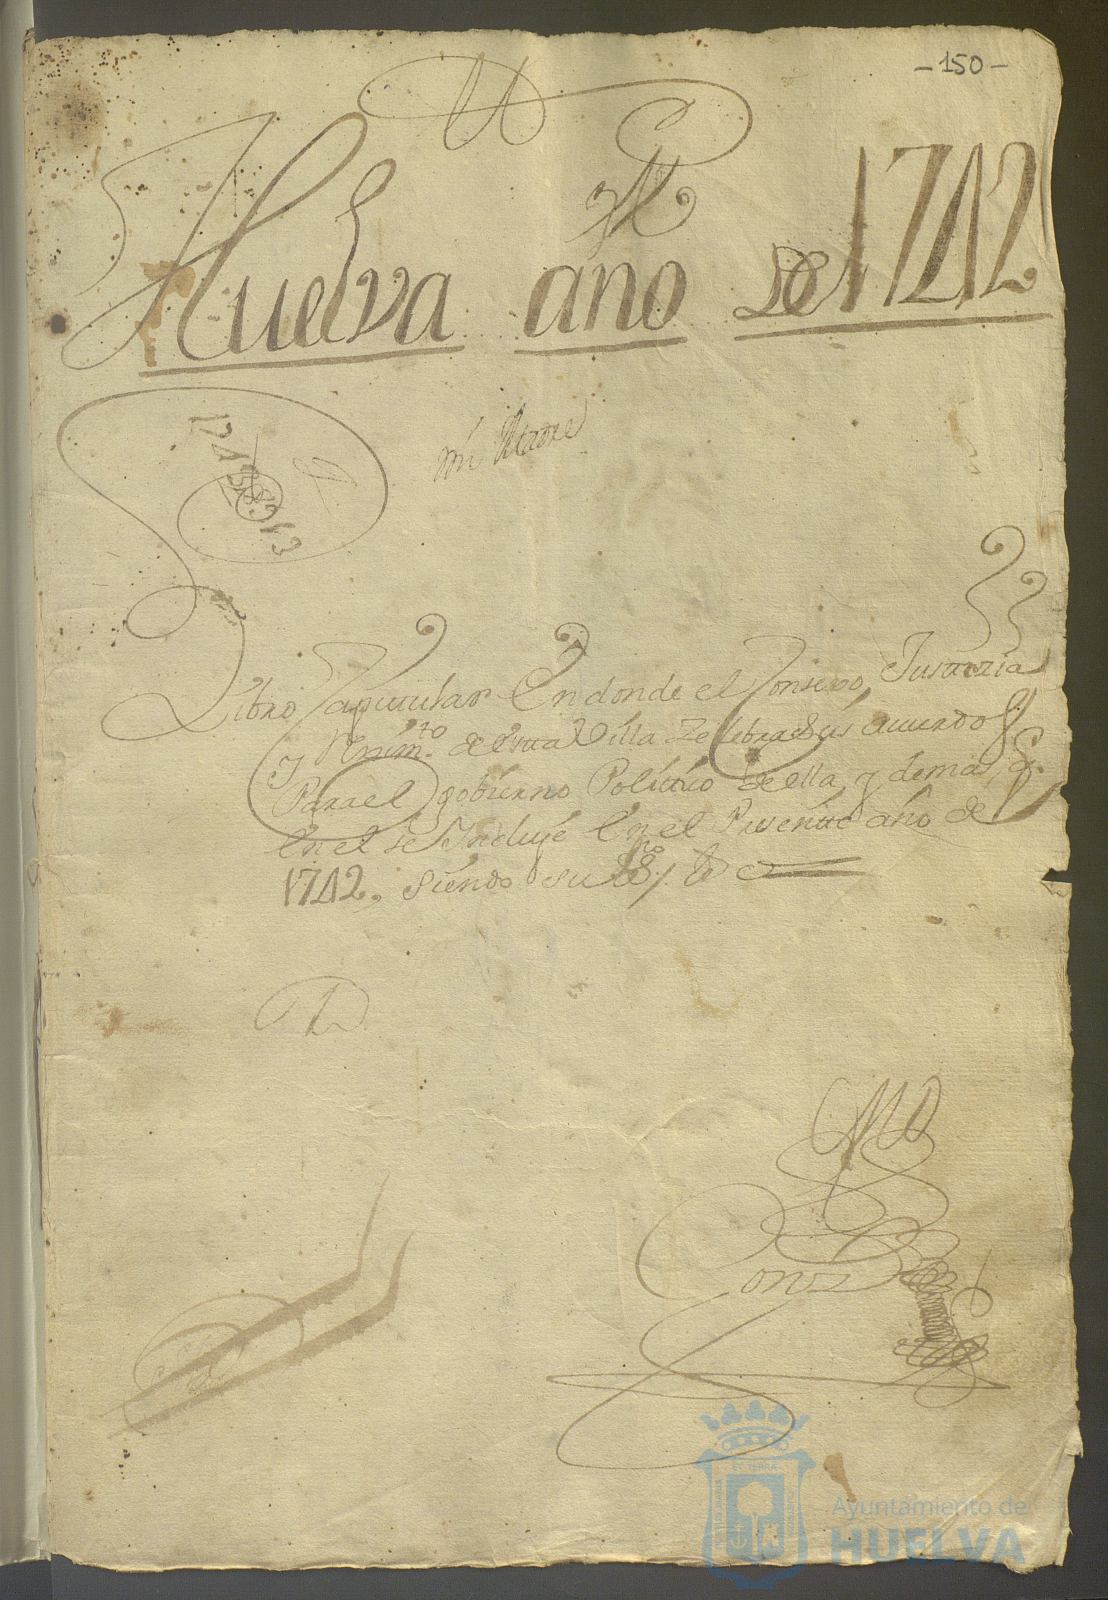 - 150 -
Huelva año de 1742
Libro Capitular En donde el Consejo Justizia
Y Rejim.to de esta Villa Zelebra sus acuerdos
Para el gobierno Politico de ella, y demas q.
En el se Incluye En el Presente año de
1742. Siendo su
Gonz
Ayuntamiento de
HUELVA